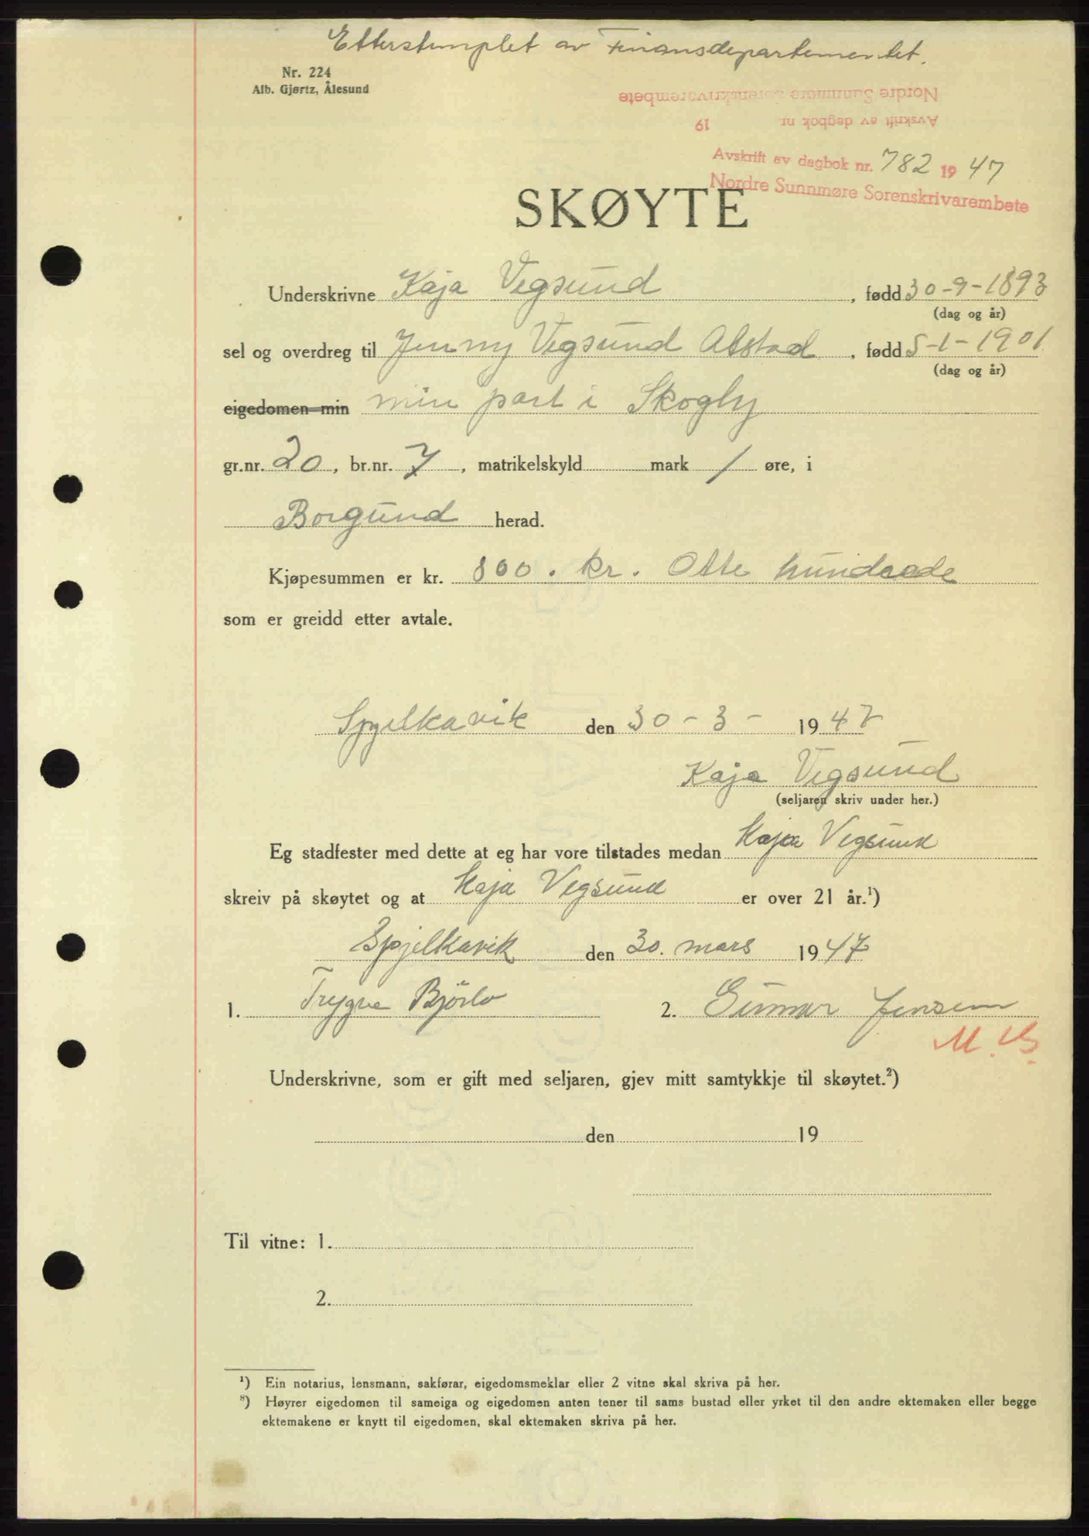 Etterstemplet av Finansdepartementet.
Nr. 224
Alb. Gjørtz, Ålesund
Nordre Sunnmøre Sorenskrivarembete
Avskrift av dagbok nr. 19
Avskrift av dagbok nr. 782 1947
Nordre Sunnmøre Sorenskrivarembete
SKØYTE
Underskrivne Kaja Vegsund, fødd 30-9-1893
(dag og år)
sel og overdreg til Jenny Vegsund Alstad, fødd 5-1-1901
(dag og år)
eigedomen min min part i Skogly
gr.nr. 20, br.nr. 7, matrikelskyld mark / øre, i
Borgund herad.
Kjøpesummen er kr. 800. kr. Otte hundrede
som er greidd etter avtale.
Spjelkavik den 30-3- 1947
Kaja Vegsund
(seljaren skriv under her.)
Eg stadfester med dette at eg har vore tilstades medan Kaja Vegsund
skreiv på skøytet og at Kaja Vegsund er over 21 år.¹)
Spjelkavik den 30. mars 1947
1. Trygve Bjørlo 2. Gunnar Jensen
M. B.
Underskrivne, som er gift med seljaren, gjev mitt samtykkje til skøytet.²)
den 19
Til vitne: 1.
2.
¹) Ein notarius, lensmann, sakførar, eigedomsmeklar eller 2 vitne skal skriva på her.
²) Høyrer eigedomen til sameiga og eigedomen anten tener til sams bustad eller yrket til den andre ektemaken eller begge
ektemakene er knytt til eigedomen, skal ektemaken skriva på her.